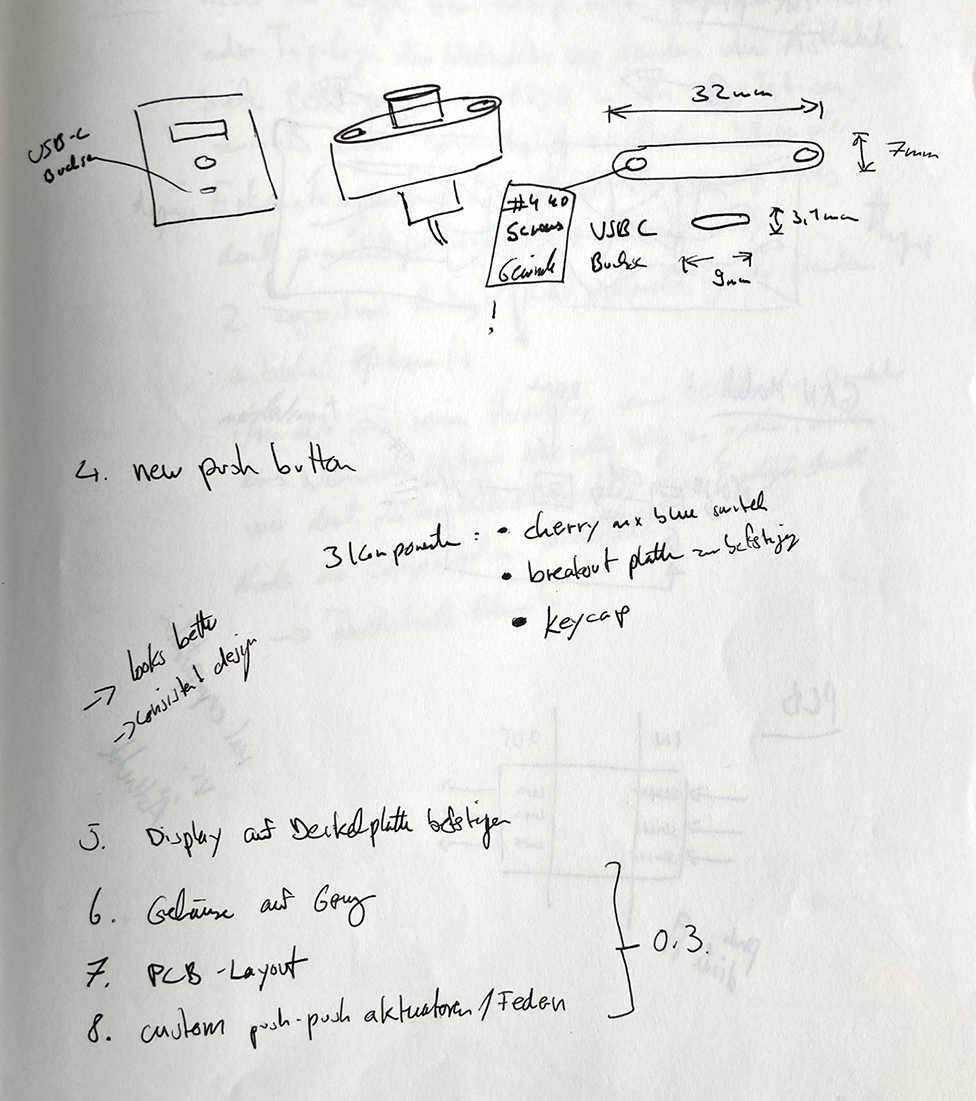 USB-C
Buchse
32mm
7mm
#4 40
Screws
Gewinde
!
USB C
Buchse
3,1mm
9mm
4. new push button
3 Komponente : • cherry mx blue switch
• breakout platte zum befestigen
• keycap
-> looks better
-> consistent design
5. Display auf Deckelplatte befestigen
6. Gehäuse auf
7. PCB-Layout
8. custom push-push aktuatoren / Federn
0.3.
PCB
IN
OUT